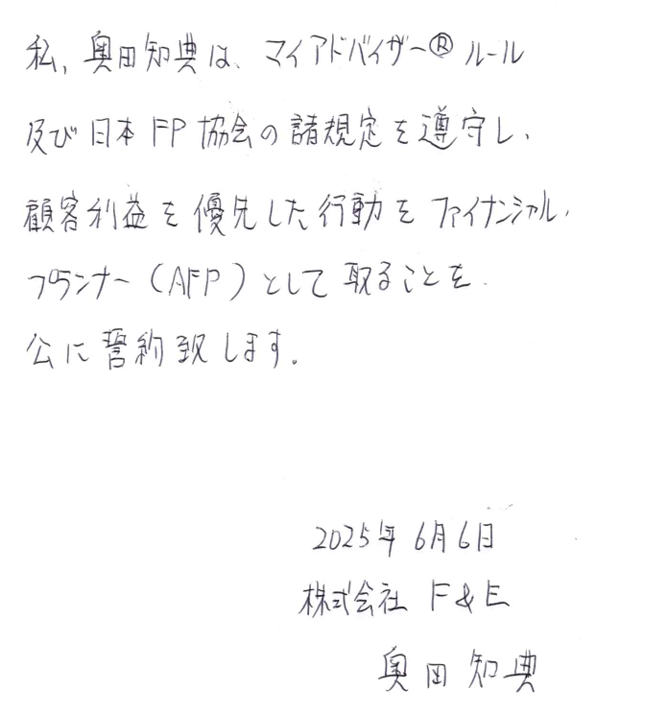 私、奥田知典は、マイアドバイザー®ルール
及び日本FP協会の諸規定を遵守し、
顧客利益を優先した行動をファイナンシャル・
プランナー(AFP)として取ることを、
公に誓約致します。
2025年6月6日
株式会社 F&E
奥田 知典